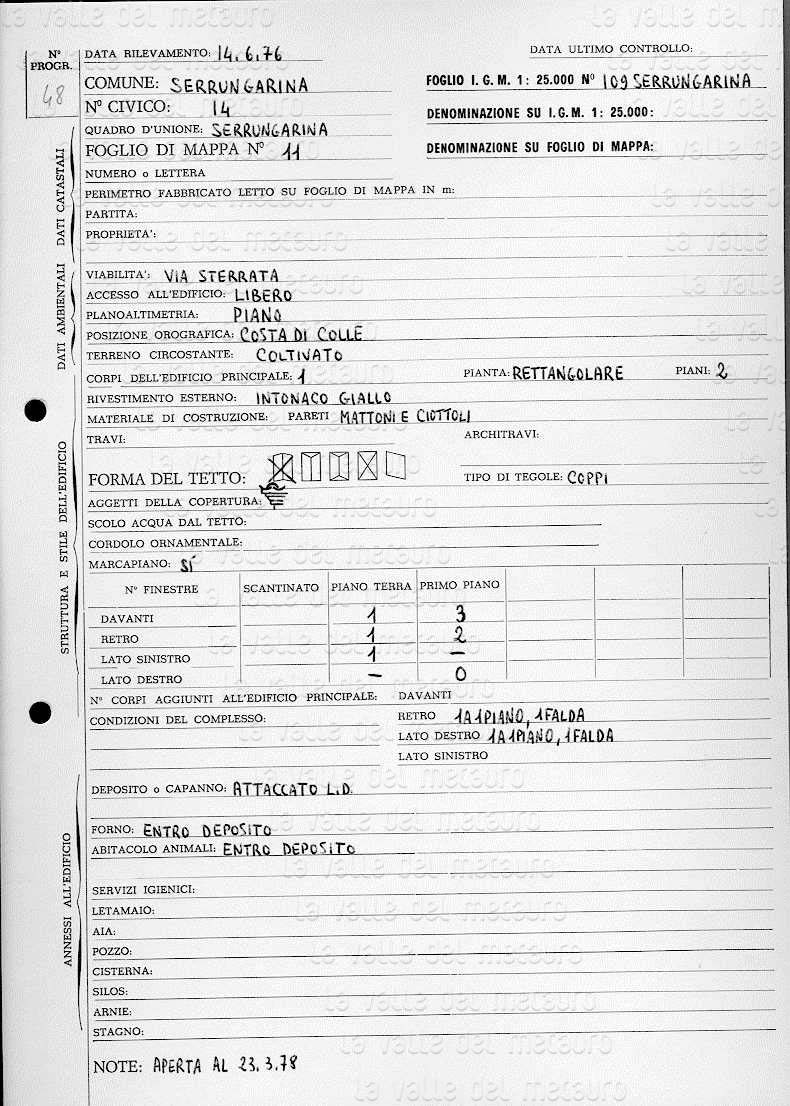 la valle del metauro
N° PROGR.
48
DATA RILEVAMENTO: 14.6.76
DATA ULTIMO CONTROLLO:
COMUNE: SERRUNGARINA
FOGLIO I. G. M. 1: 25.000 N° 109 SERRUNGARINA
N° CIVICO: 14
DENOMINAZIONE SU I.G.M. 1: 25.000:
QUADRO D'UNIONE: SERRUNGARINA
FOGLIO DI MAPPA N° 11
DENOMINAZIONE SU FOGLIO DI MAPPA:
NUMERO o LETTERA
PERIMETRO FABBRICATO LETTO SU FOGLIO DI MAPPA IN m:
PARTITA:
PROPRIETA':
DATI CATASTALI
VIABILITA': VIA STERRATA
ACCESSO ALL'EDIFICIO: LIBERO
PLANOALTIMETRIA: PIANO
POSIZIONE OROGRAFICA: COSTA DI COLLE
TERRENO CIRCOSTANTE: COLTIVATO
DATI AMBIENTALI
CORPI DELL'EDIFICIO PRINCIPALE: 1 PIANTA: RETTANGOLARE PIANI: 2
RIVESTIMENTO ESTERNO: INTONACO GIALLO
MATERIALE DI COSTRUZIONE: PARETI MATTONI E CIOTTOLI
TRAVI: ARCHITRAVI:
FORMA DEL TETTO: TIPO DI TEGOLE: COPPI
AGGETTI DELLA COPERTURA:
SCOLO ACQUA DAL TETTO:
CORDOLO ORNAMENTALE:
MARCAPIANO: SÍ
N° FINESTRE SCANTINATO PIANO TERRA PRIMO PIANO
DAVANTI 1 3
RETRO 1 2
LATO SINISTRO 1 –
LATO DESTRO – 0
STRUTTURA E STILE DELL'EDIFICIO
N° CORPI AGGIUNTI ALL'EDIFICIO PRINCIPALE: DAVANTI
CONDIZIONI DEL COMPLESSO: RETRO 1 A 1 PIANO, 1 FALDA
LATO DESTRO 1 A 1 PIANO, 1 FALDA
LATO SINISTRO
DEPOSITO o CAPANNO: ATTACCATO L.D.
FORNO: ENTRO DEPOSITO
ABITACOLO ANIMALI: ENTRO DEPOSITO
SERVIZI IGIENICI:
LETAMAIO:
AIA:
POZZO:
CISTERNA:
SILOS:
ARNIE:
STAGNO:
ANNESSI ALL'EDIFICIO
NOTE: APERTA AL 23.3.78